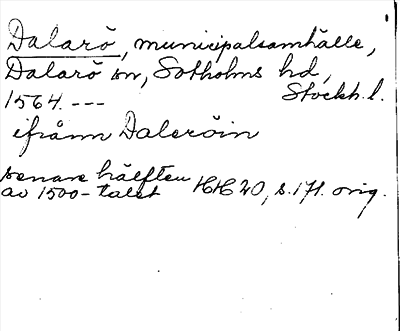 Dalarö, municipalsamhälle,
Dalarö sn, Sotholms hd,
1564. --- Stockh. l.
ifrånn Daleröin
senare hälften
av 1500-talet HH 20, s. 171. orig.